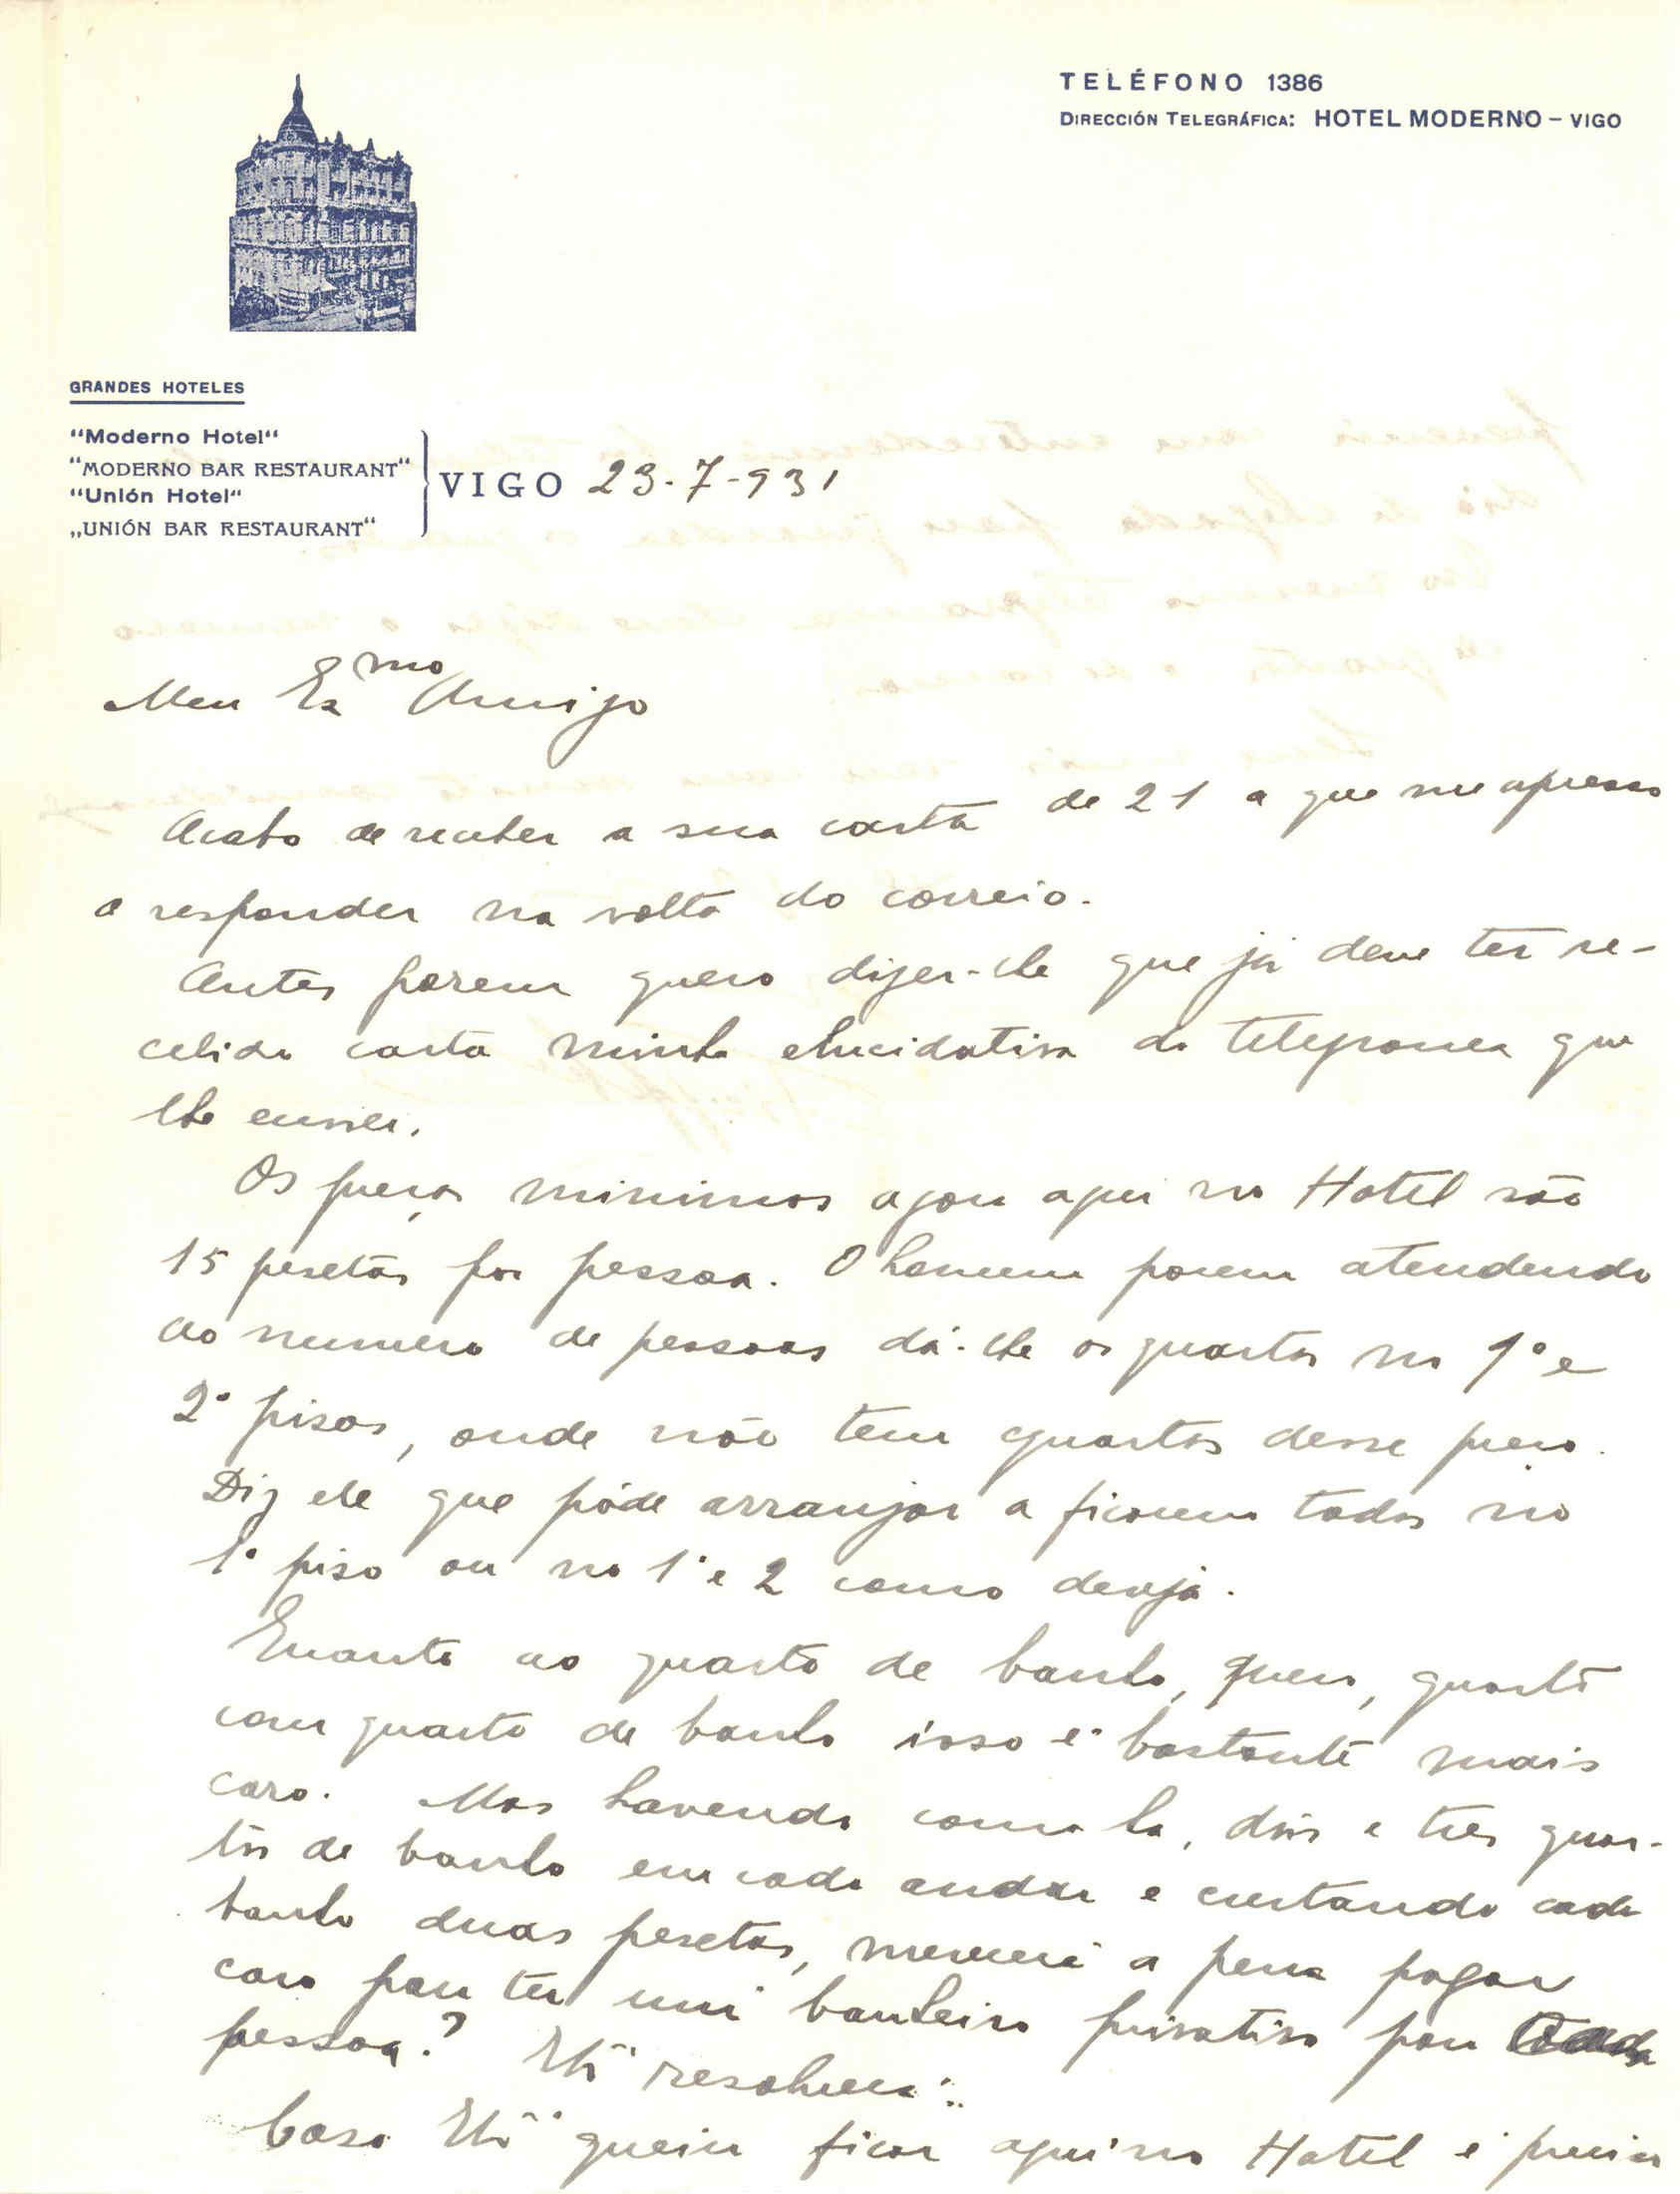 TELÉFONO 1386
DIRECCIÓN TELEGRÁFICA: HOTEL MODERNO – VIGO
GRANDES HOTELES
"Moderno Hotel"
"MODERNO BAR RESTAURANT"
"Unión Hotel"
„UNIÓN BAR RESTAURANT"
VIGO 23-7-931
Meu Exmo Amigo
Acabo de receber a sua carta de 21 a que me apresso
a responder na volta do correio.
Antes porem quero dizer-lhe que já deve ter re-
cebido carta minha elucidativa do telegrama que
lhe enviei.
Os preços minimos agora aqui no Hotel são
15 pesetas por pessoa. O homem porem atendendo
ao numero de pessoas dá-lhe os quartos no 1º e
2º pisos, onde não tem quartos desse preço.
Diz ele que póde arranjar a ficarem todos no
1º piso ou no 1º e 2 como deseja.
Quanto ao quarto de banho, quero, quarto
com quarto de banho isso é bastante mais
caro. Mas havendo como ha, dois e tres quar-
tos de banho em cada andar e custando cada
banho duas pesetas, merecerá a pena pagar
caro para ter um banheiro privativo para cada
pessoa? resolverá.
Caso queira ficar aqui no Hotel é preciso